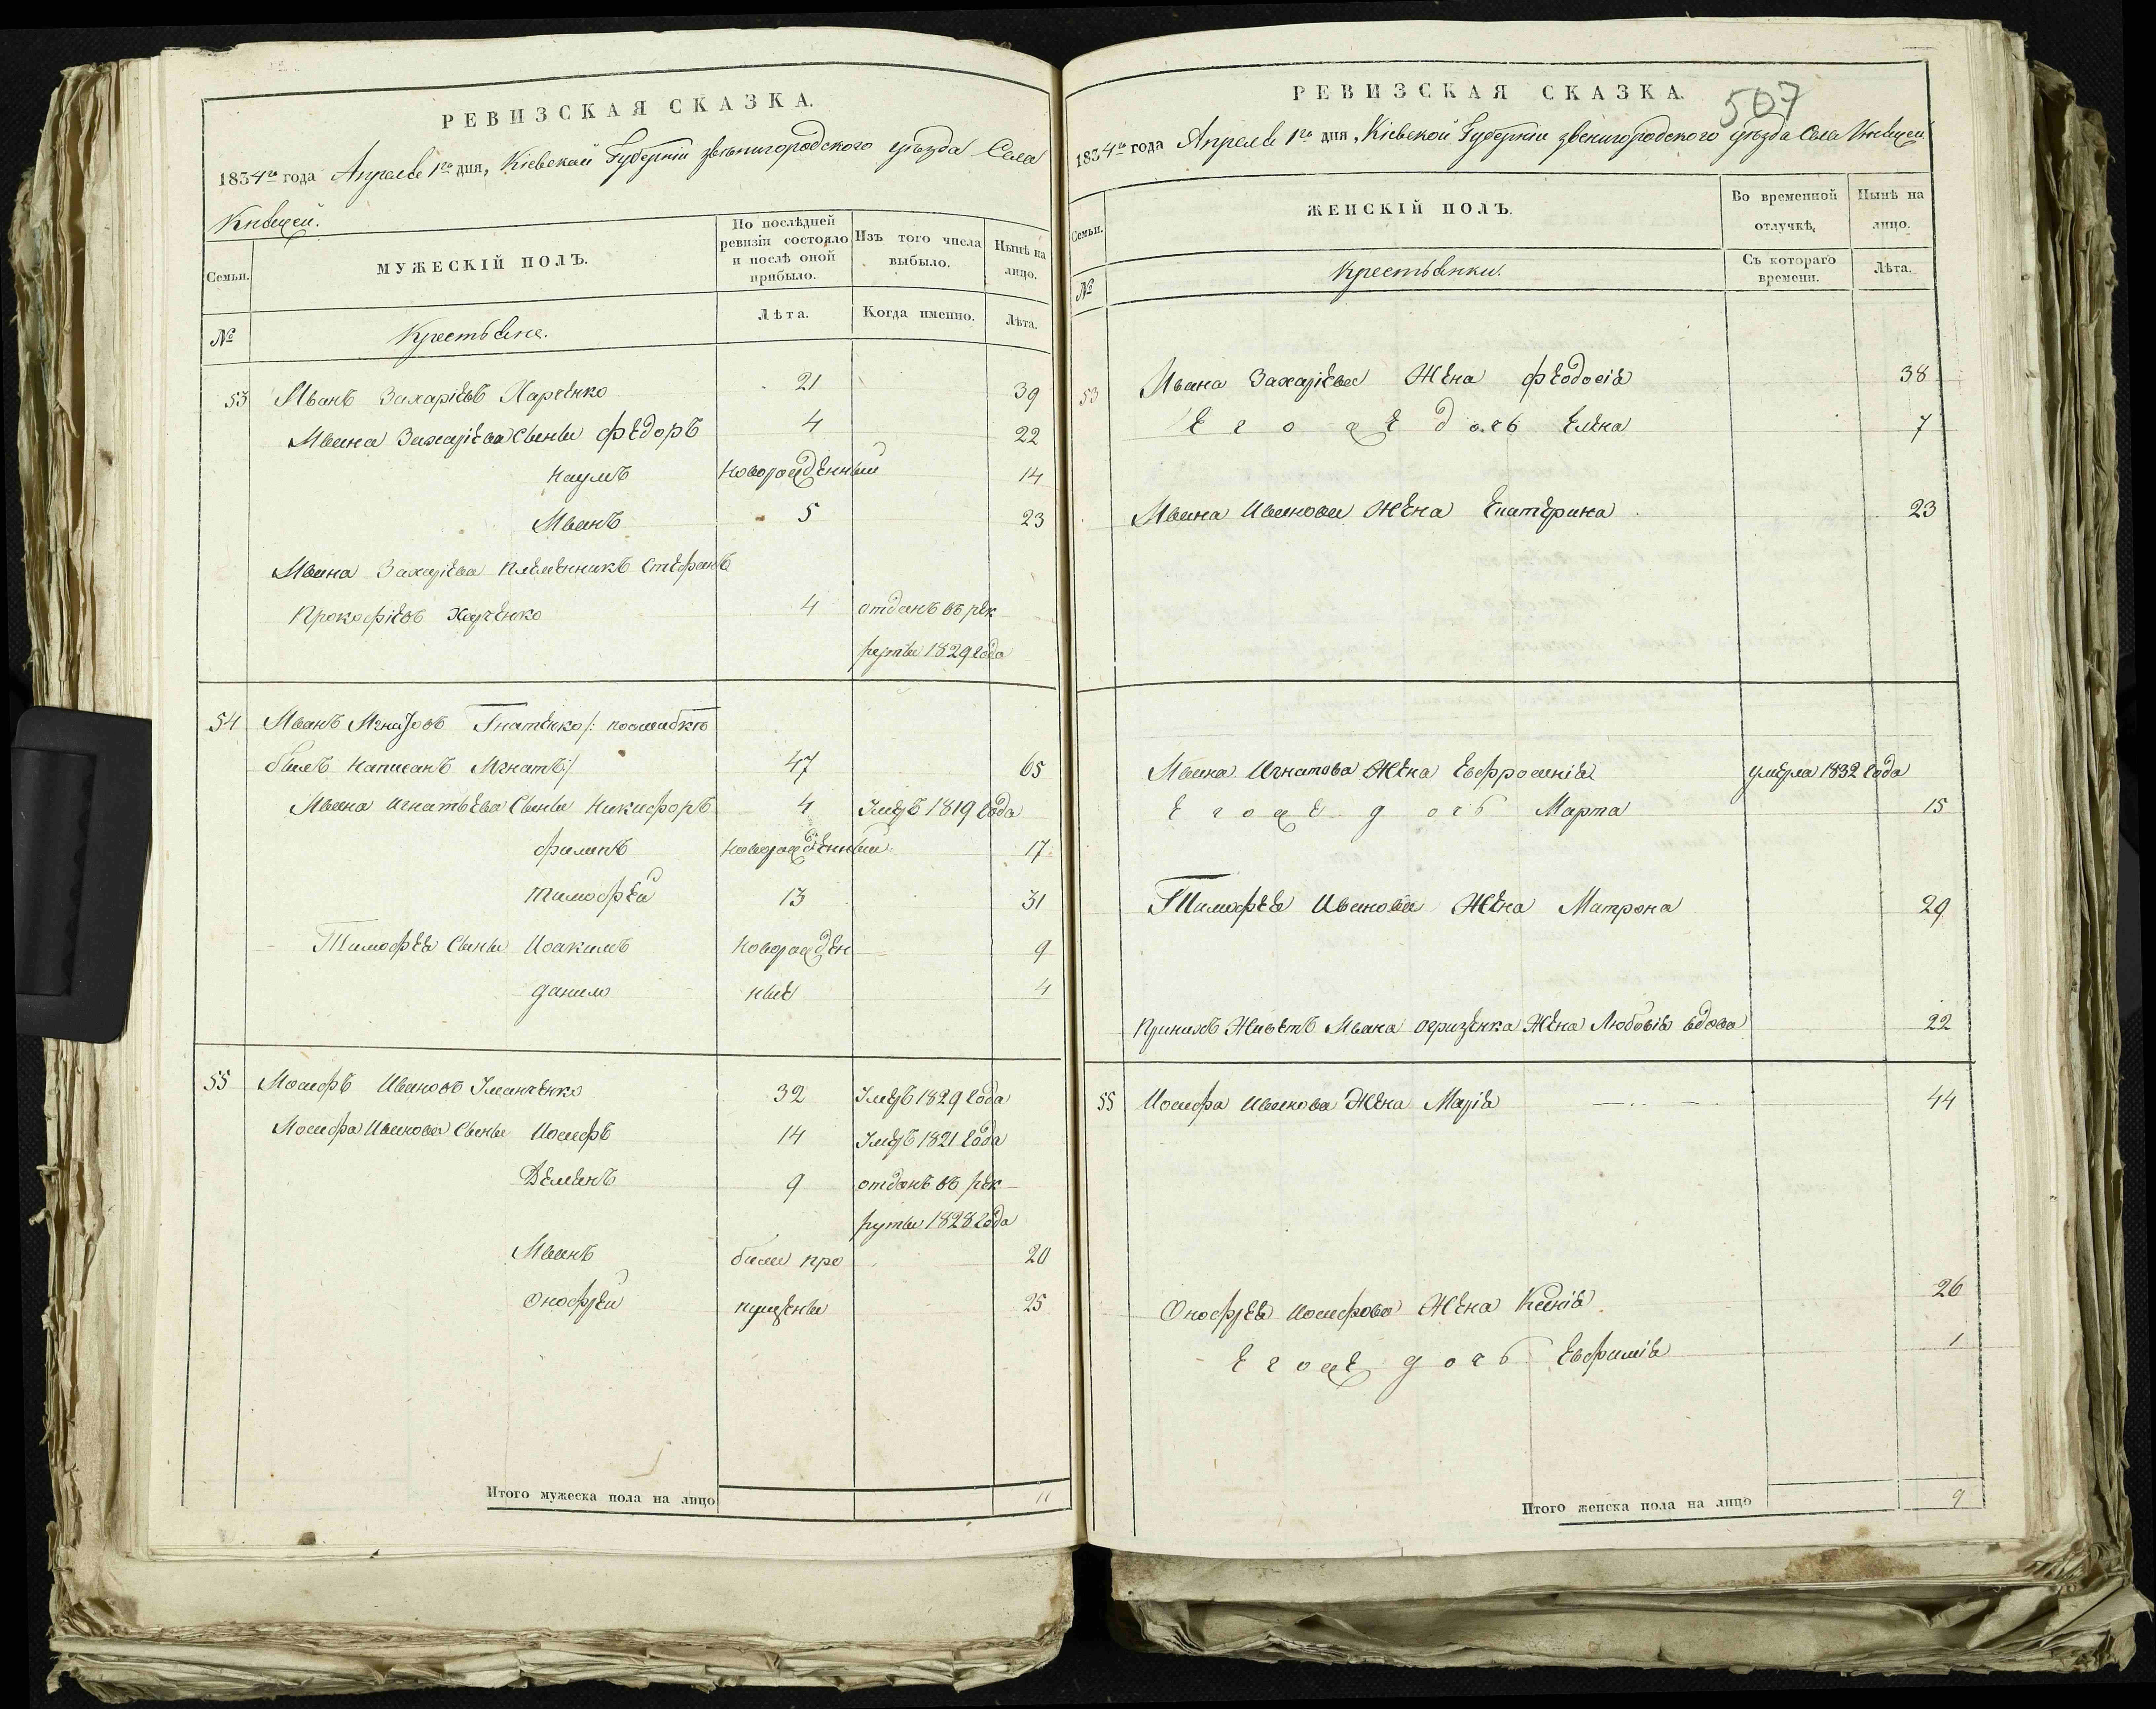 РЕВИЗСКАЯ СКАЗКА.
1834го года Апреля 1го дня, Кіевской Губерніи звенигородского уѣзда Села
Княжей.
Семьи.
МУЖЕСКІЙ ПОЛЪ.
По послѣдней
ревизіи состояло
и послѣ оной
прибыло.
Изъ того числа
выбыло.
Нынѣ на
лицо.
№
Крестьяне.
Лѣта.
Когда именно.
Лѣта.
53 Иванъ Захаріевъ Харченко 21 39
Ивана Захаріева Сыны Федоръ 4 22
Наумъ новорожденный 14
Иванъ 5 23
Ивана Захаріева племенникъ Стефанъ
Прокофіевъ Харченко 4 отданъ въ рек
руты 1829 года
54 Иванъ Игнатовъ Гнатенко /: поошибкѣ
былъ написанъ Игнатъ :/ 47 65
Ивана Игнатьева Сыны Никифоръ 4 Умеръ 1819 года
филипъ новорожденный 17
тимофей 13 31
Тимофея Сыны Иоакимъ новорожден 9
данило ные 4
55 Иосифъ Ивановъ 32 Умеръ 1829 года
Иосифа Иванова Сыны Иосифъ 14 Умеръ 1821 года
Демянъ 9 отданъ въ рек
руты 1828 года
Иванъ были про 20
Онофрей пущены 25
Итого мужеска пола на лицо 11
507
РЕВИЗСКАЯ СКАЗКА.
1834го года Апреля 1го дня, Кіевской Губерніи звенигородского уѣзда Села Княжей
Семьи.
ЖЕНСКІЙ ПОЛЪ.
Во временной
отлучкѣ,
Нынѣ на
лицо.
№
Крестьянки.
Съ котораго
времени.
Лѣта.
53 Ивана Захаріева Жена феодосія 38
Его же дочь Елена 7
Ивана Иванова Жена Екатерина 23
Ивана Игнатова Жена Евфросинія умерла 1832 года
Егоже дочь Марта 15
Тимофея Иванова Жена Матрона 29
принихъ Живетъ Ивана Жена Любовія вдова 22
55 Иосифа Иванова Жена Марія 44
Онофрея Иосифова Жена Ксенія 26
Егоже дочь Евфимія 1
Итого женска пола на лицо 9